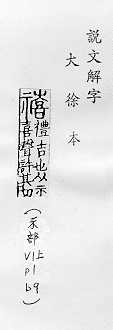 説文解字
大徐本
禧 禮吉也从示
喜聲許其切
(示部
V1上
p1
b9)